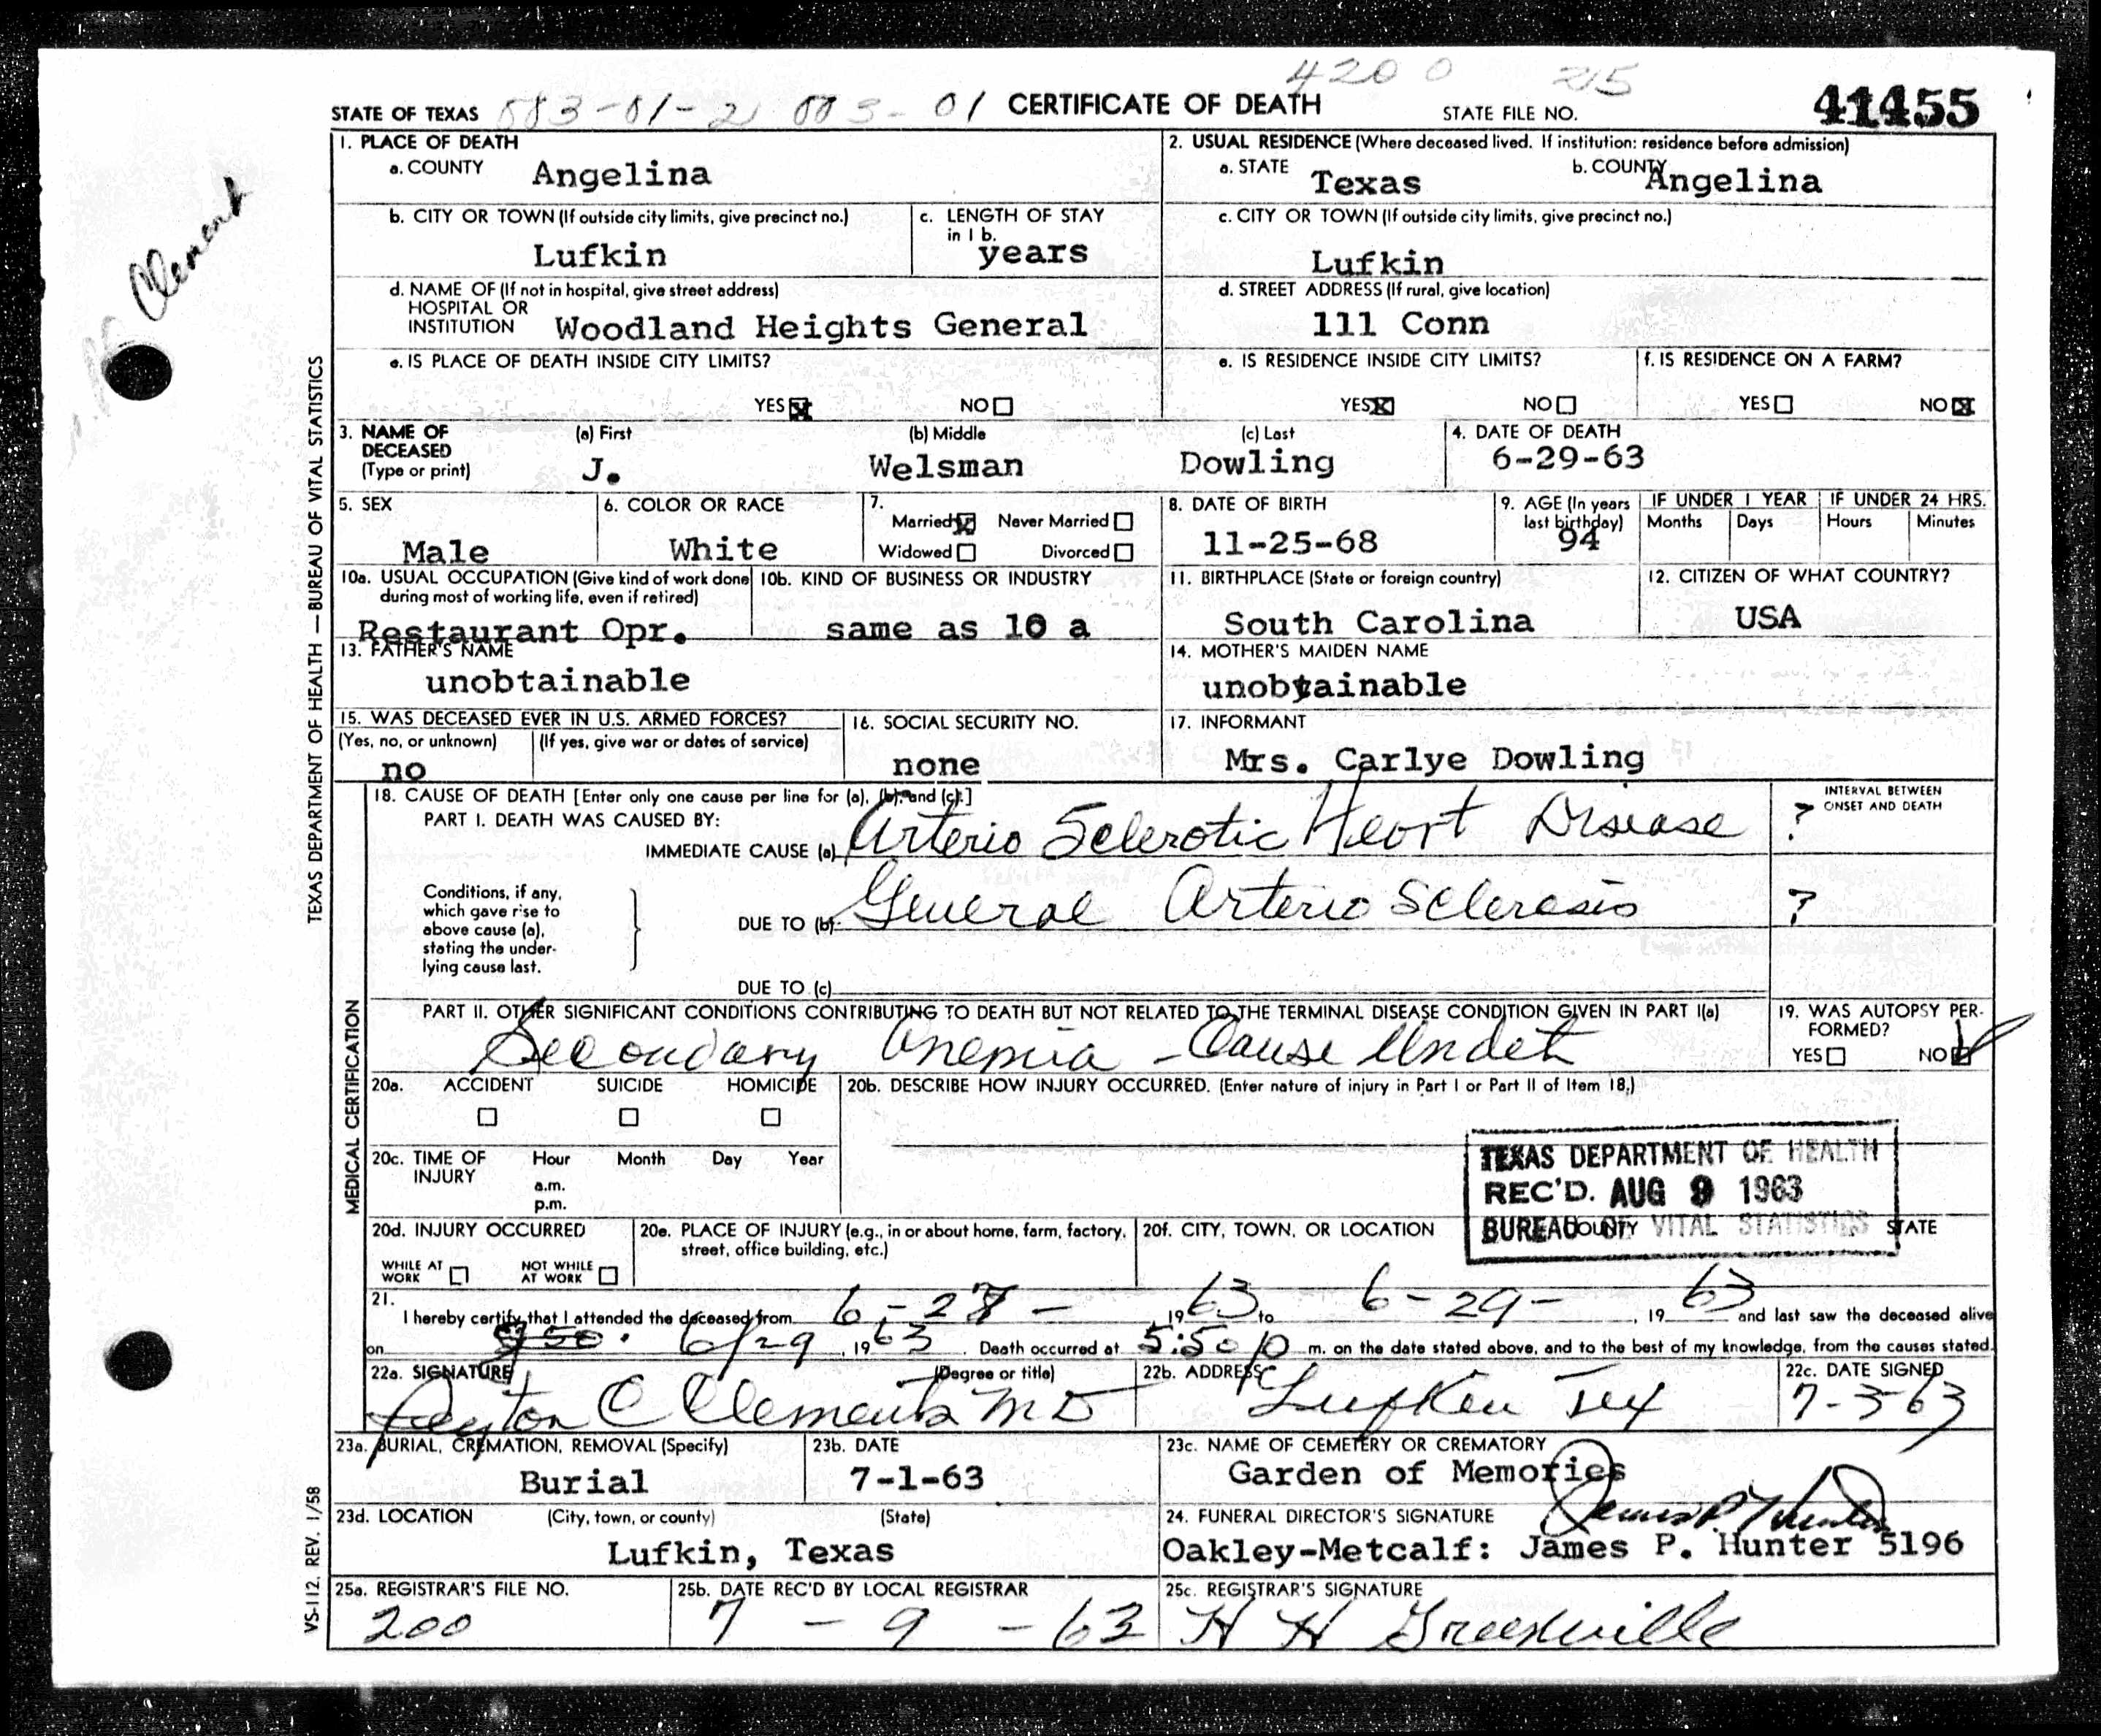 4200 215
STATE OF TEXAS 003-01-2 003-01 CERTIFICATE OF DEATH STATE FILE NO. 41455
Clement
1. PLACE OF DEATH
a. COUNTY Angelina
2. USUAL RESIDENCE (Where deceased lived. If institution: residence before admission)
a. STATE Texas b. COUNTY Angelina
b. CITY OR TOWN (If outside city limits, give precinct no.) Lufkin
c. LENGTH OF STAY in 1 b. years
c. CITY OR TOWN (If outside city limits, give precinct no.) Lufkin
d. NAME OF (If not in hospital, give street address)
HOSPITAL OR
INSTITUTION Woodland Heights General
d. STREET ADDRESS (If rural, give location)
111 Conn
e. IS PLACE OF DEATH INSIDE CITY LIMITS?
YES NO
e. IS RESIDENCE INSIDE CITY LIMITS?
YES NO
f. IS RESIDENCE ON A FARM?
YES NO
3. NAME OF DECEASED (Type or print)
(a) First J. (b) Middle Welsman (c) Last Dowling
4. DATE OF DEATH
6-29-63
5. SEX
Male
6. COLOR OR RACE
White
7.
Married Never Married
Widowed Divorced
8. DATE OF BIRTH
11-25-68
9. AGE (In years last birthday)
94
IF UNDER 1 YEAR
Months Days
IF UNDER 24 HRS.
Hours Minutes
10a. USUAL OCCUPATION (Give kind of work done
during most of working life, even if retired)
Restaurant Opr.
10b. KIND OF BUSINESS OR INDUSTRY
same as 10 a
11. BIRTHPLACE (State or foreign country)
South Carolina
12. CITIZEN OF WHAT COUNTRY?
USA
13. FATHER'S NAME
unobtainable
14. MOTHER'S MAIDEN NAME
unobtainable
15. WAS DECEASED EVER IN U.S. ARMED FORCES?
(Yes, no, or unknown) (If yes, give war or dates of service)
no
16. SOCIAL SECURITY NO.
none
17. INFORMANT
Mrs. Carlye Dowling
18. CAUSE OF DEATH [Enter only one cause per line for (a), (b), and (c).]
INTERVAL BETWEEN
ONSET AND DEATH
PART I. DEATH WAS CAUSED BY:
IMMEDIATE CAUSE (a) Arterio Sclerotic Heart Disease ?
Conditions, if any,
which gave rise to
above cause (a),
stating the under-
lying cause last.
DUE TO (b) General Arterio Sclerosis ?
DUE TO (c)
PART II. OTHER SIGNIFICANT CONDITIONS CONTRIBUTING TO DEATH BUT NOT RELATED TO THE TERMINAL DISEASE CONDITION GIVEN IN PART I(a)
Secondary Anemia - Cause Undet
19. WAS AUTOPSY PER-
FORMED?
YES NO
20a. ACCIDENT SUICIDE HOMICIDE
20b. DESCRIBE HOW INJURY OCCURRED. (Enter nature of injury in Part I or Part II of Item 18.)
20c. TIME OF INJURY Hour Month Day Year
a.m.
p.m.
TEXAS DEPARTMENT OF HEALTH
REC'D. AUG 9 1963
BUREAU OF VITAL STATISTICS
20d. INJURY OCCURRED
WHILE AT WORK NOT WHILE AT WORK
20e. PLACE OF INJURY (e.g., in or about home, farm, factory,
street, office building, etc.)
20f. CITY, TOWN, OR LOCATION COUNTY STATE
21.
I hereby certify that I attended the deceased from 6-27- 1963 to 6-29-, 1963 and last saw the deceased alive
on 6/29, 1963. Death occurred at 5:50 p m. on the date stated above, and to the best of my knowledge, from the causes stated.
22a. SIGNATURE (Degree or title)
Peyton C Clements MD
22b. ADDRESS
Lufkin Tex
22c. DATE SIGNED
7-3-63
23a. BURIAL, CREMATION, REMOVAL (Specify)
Burial
23b. DATE
7-1-63
23c. NAME OF CEMETERY OR CREMATORY
Garden of Memories
23d. LOCATION (City, town, or county) (State)
Lufkin, Texas
24. FUNERAL DIRECTOR'S SIGNATURE James P. Hunter
Oakley-Metcalf: James P. Hunter 5196
25a. REGISTRAR'S FILE NO.
200
25b. DATE REC'D BY LOCAL REGISTRAR
7 - 9 - 63
25c. REGISTRAR'S SIGNATURE
H H Greenville
TEXAS DEPARTMENT OF HEALTH — BUREAU OF VITAL STATISTICS
MEDICAL CERTIFICATION
VS-112, REV. 1/58